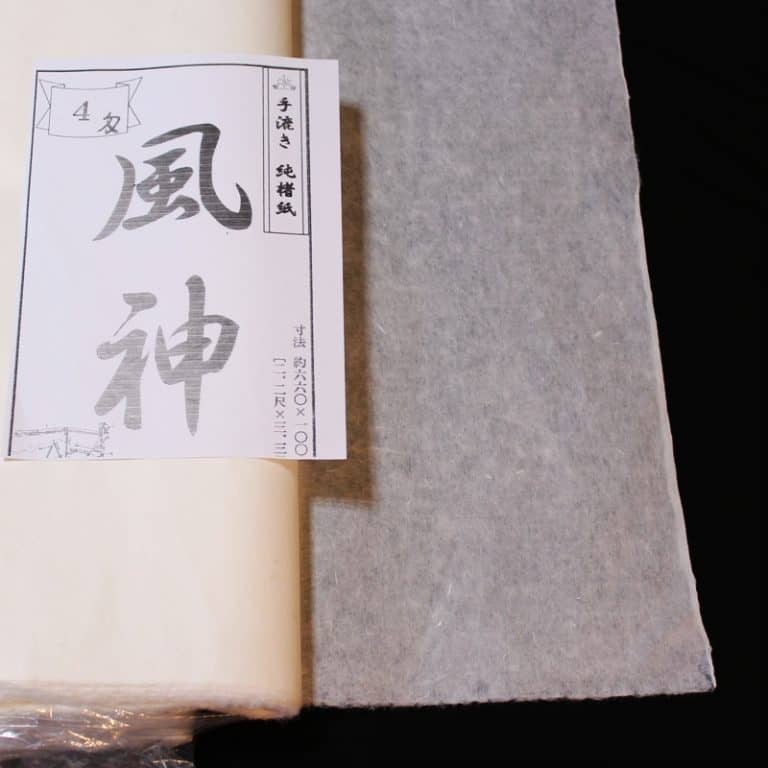 4匁
手漉き 純楮紙
風神
寸法 約六六〇×一〇〇
[二.二尺×三.三